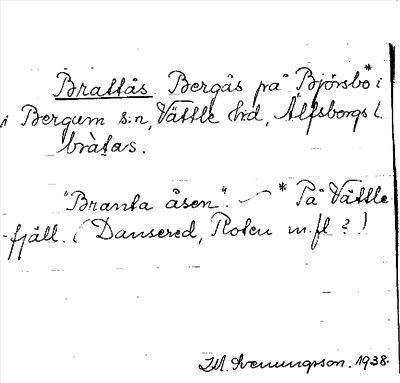 Brattås Bergås på Björsbo* i
i Bergum s:n, Vättle hd, Älfsborgs l.
bràtas.
"Branta åsen". — * På Vättle
-fjäll. (Dansered, Roten m.fl ?)
Svenungsson. 1938.